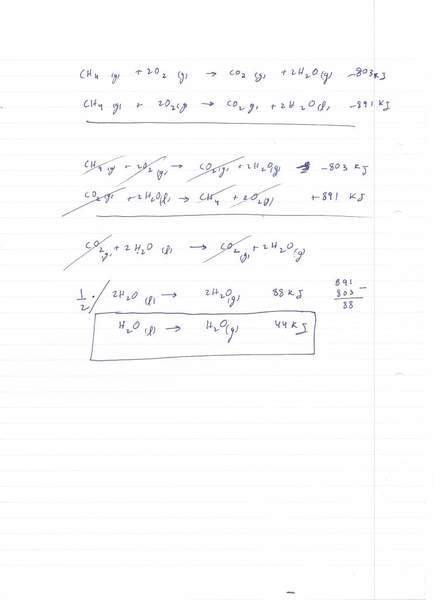 CH4 (g) + 2O2 (g) → CO2 (g) + 2H2O(g) -803 kJ
CH4 (g) + 2O2(g) → CO2 (g) + 2H2O(l) -891 kJ
CH4 (g) + 2O2 (g) → CO2(g) + 2H2O(g) -803 kJ
CO2(g) + 2H2O(l) → CH4 + 2O2(g) +891 kJ
CO2(g) + 2H2O (l) → CO2(g) + 2H2O(g)
1/2 · / 2H2O (l) → 2H2O(g) 88 kJ
891
803 -
88
H2O (l) → H2O(g) 44 kJ